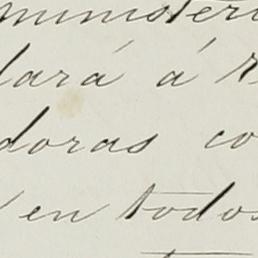 ministeri
lará á
doras co
en todos